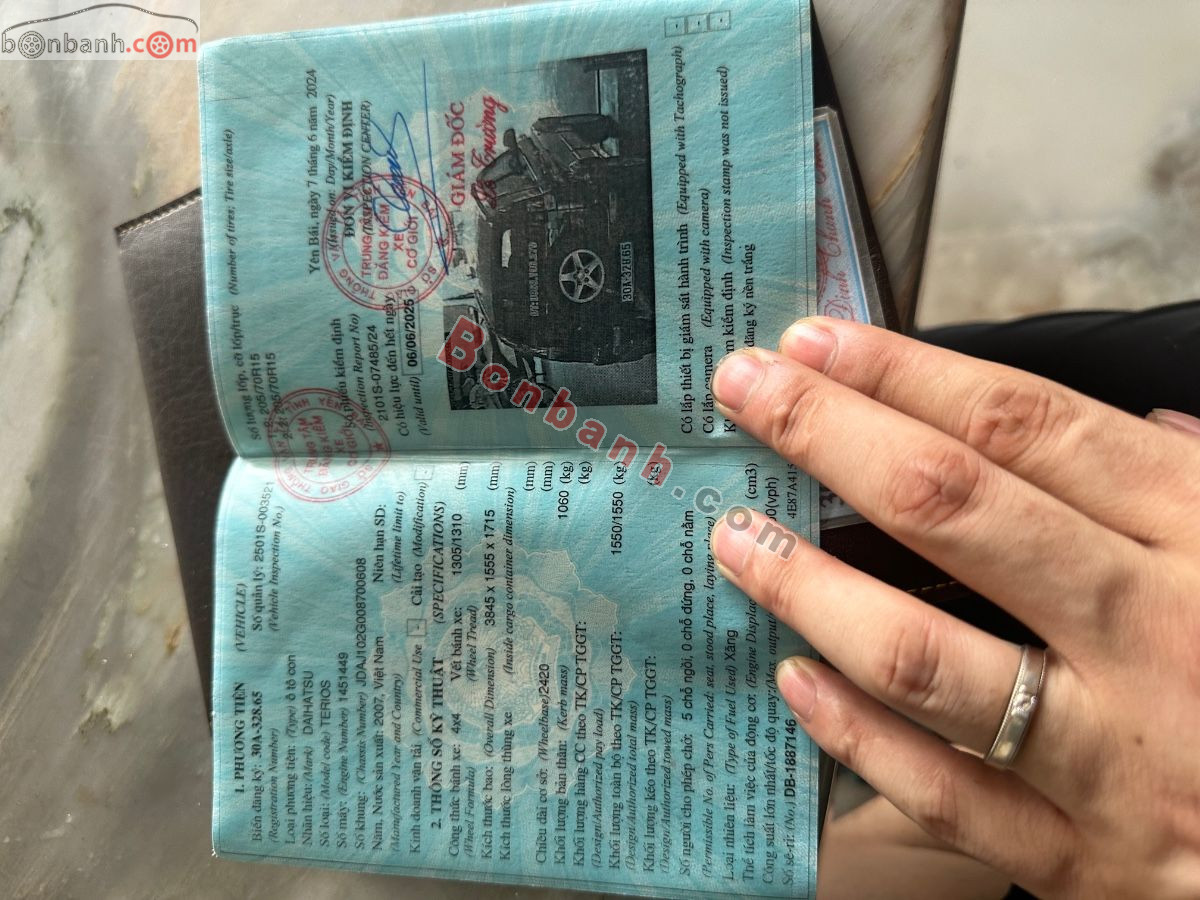 bonbanh.com
1. PHƯƠNG TIỆN (VEHICLE)
Biển đăng ký: 30A-328.65 Số quản lý: 2501S-003521
(Registration Number) (Vehicle Inspection No.)
Loại phương tiện: (Type) ô tô con
Nhãn hiệu: (Mark) DAIHATSU
Số loại: (Model code) TERIOS
Số máy: (Engine Number) 1451449
Số khung: (Chassis Number) JDAJ102G008700608
Năm, Nước sản xuất: 2007, Việt Nam Niên hạn SD:
(Manufactured Year and Country) (Lifetime limit to)
Kinh doanh vận tải (Commercial Use) - Cải tạo (Modification) -
2. THÔNG SỐ KỸ THUẬT (SPECIFICATIONS)
Công thức bánh xe: 4x4 Vết bánh xe: 1305/1310 (mm)
(Wheel Formula) (Wheel Tread)
Kích thước bao: (Overall Dimension) 3845 x 1555 x 1715 (mm)
Kích thước lòng thùng xe (Inside cargo container dimension)
(mm)
Chiều dài cơ sở: (Wheelbase) 2420 (mm)
Khối lượng bản thân: (Kerb mass) 1060 (kg)
Khối lượng hàng CC theo TK/CP TGGT: (kg)
(Design/Authorized pay load)
Khối lượng toàn bộ theo TK/CP TGGT: 1550/1550 (kg)
(Design/Authorized total mass)
Khối lượng kéo theo TK/CP TGGT: (kg)
(Design/Authorized towed mass)
Số người cho phép chở: 5 chỗ ngồi, 0 chỗ đứng, 0 chỗ nằm
(Permissible No. of Pers Carried: seat, stood place, laying place)
Loại nhiên liệu: (Type of Fuel Used) Xăng
Thể tích làm việc của động cơ: (Engine Displac (cm3)
Công suất lớn nhất/tốc độ quay: (Max. output (vph)
Số sê-ri: (No.) DB-1887146 4E87A415
Số lượng lốp, cỡ lốp/trục (Number of tires; Tire size/axle)
1: 2; 205/70R15
2: 2; 205/70R15
Số phiếu kiểm định
(Inspection Report No)
2101S-07485/24
Có hiệu lực đến hết ngày
(Valid until) 06/06/2025
Yên Bái, ngày 7 tháng 6 năm 2024
(Issued on: Day/Month/Year)
ĐƠN VỊ KIỂM ĐỊNH
(INSPECTION CENTER)
TRUNG TÂM
ĐĂNG KIỂM
XE
CƠ GIỚI
GIÁM ĐỐC
30A-328.65
Có lắp thiết bị giám sát hành trình (Equipped with Tachograph) -
Có lắp camera (Equipped with camera) -
kiểm định (Inspection stamp was not issued) -
đăng ký nền trắng
TRUNG TÂM
ĐĂNG KIỂM
XE
CƠ GIỚI
Bonbanh.com